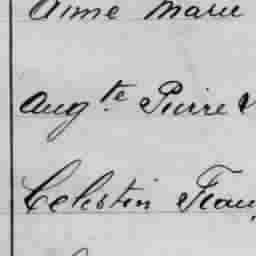 Aimé Marie
Aug.te Pierre
Célestin Fran